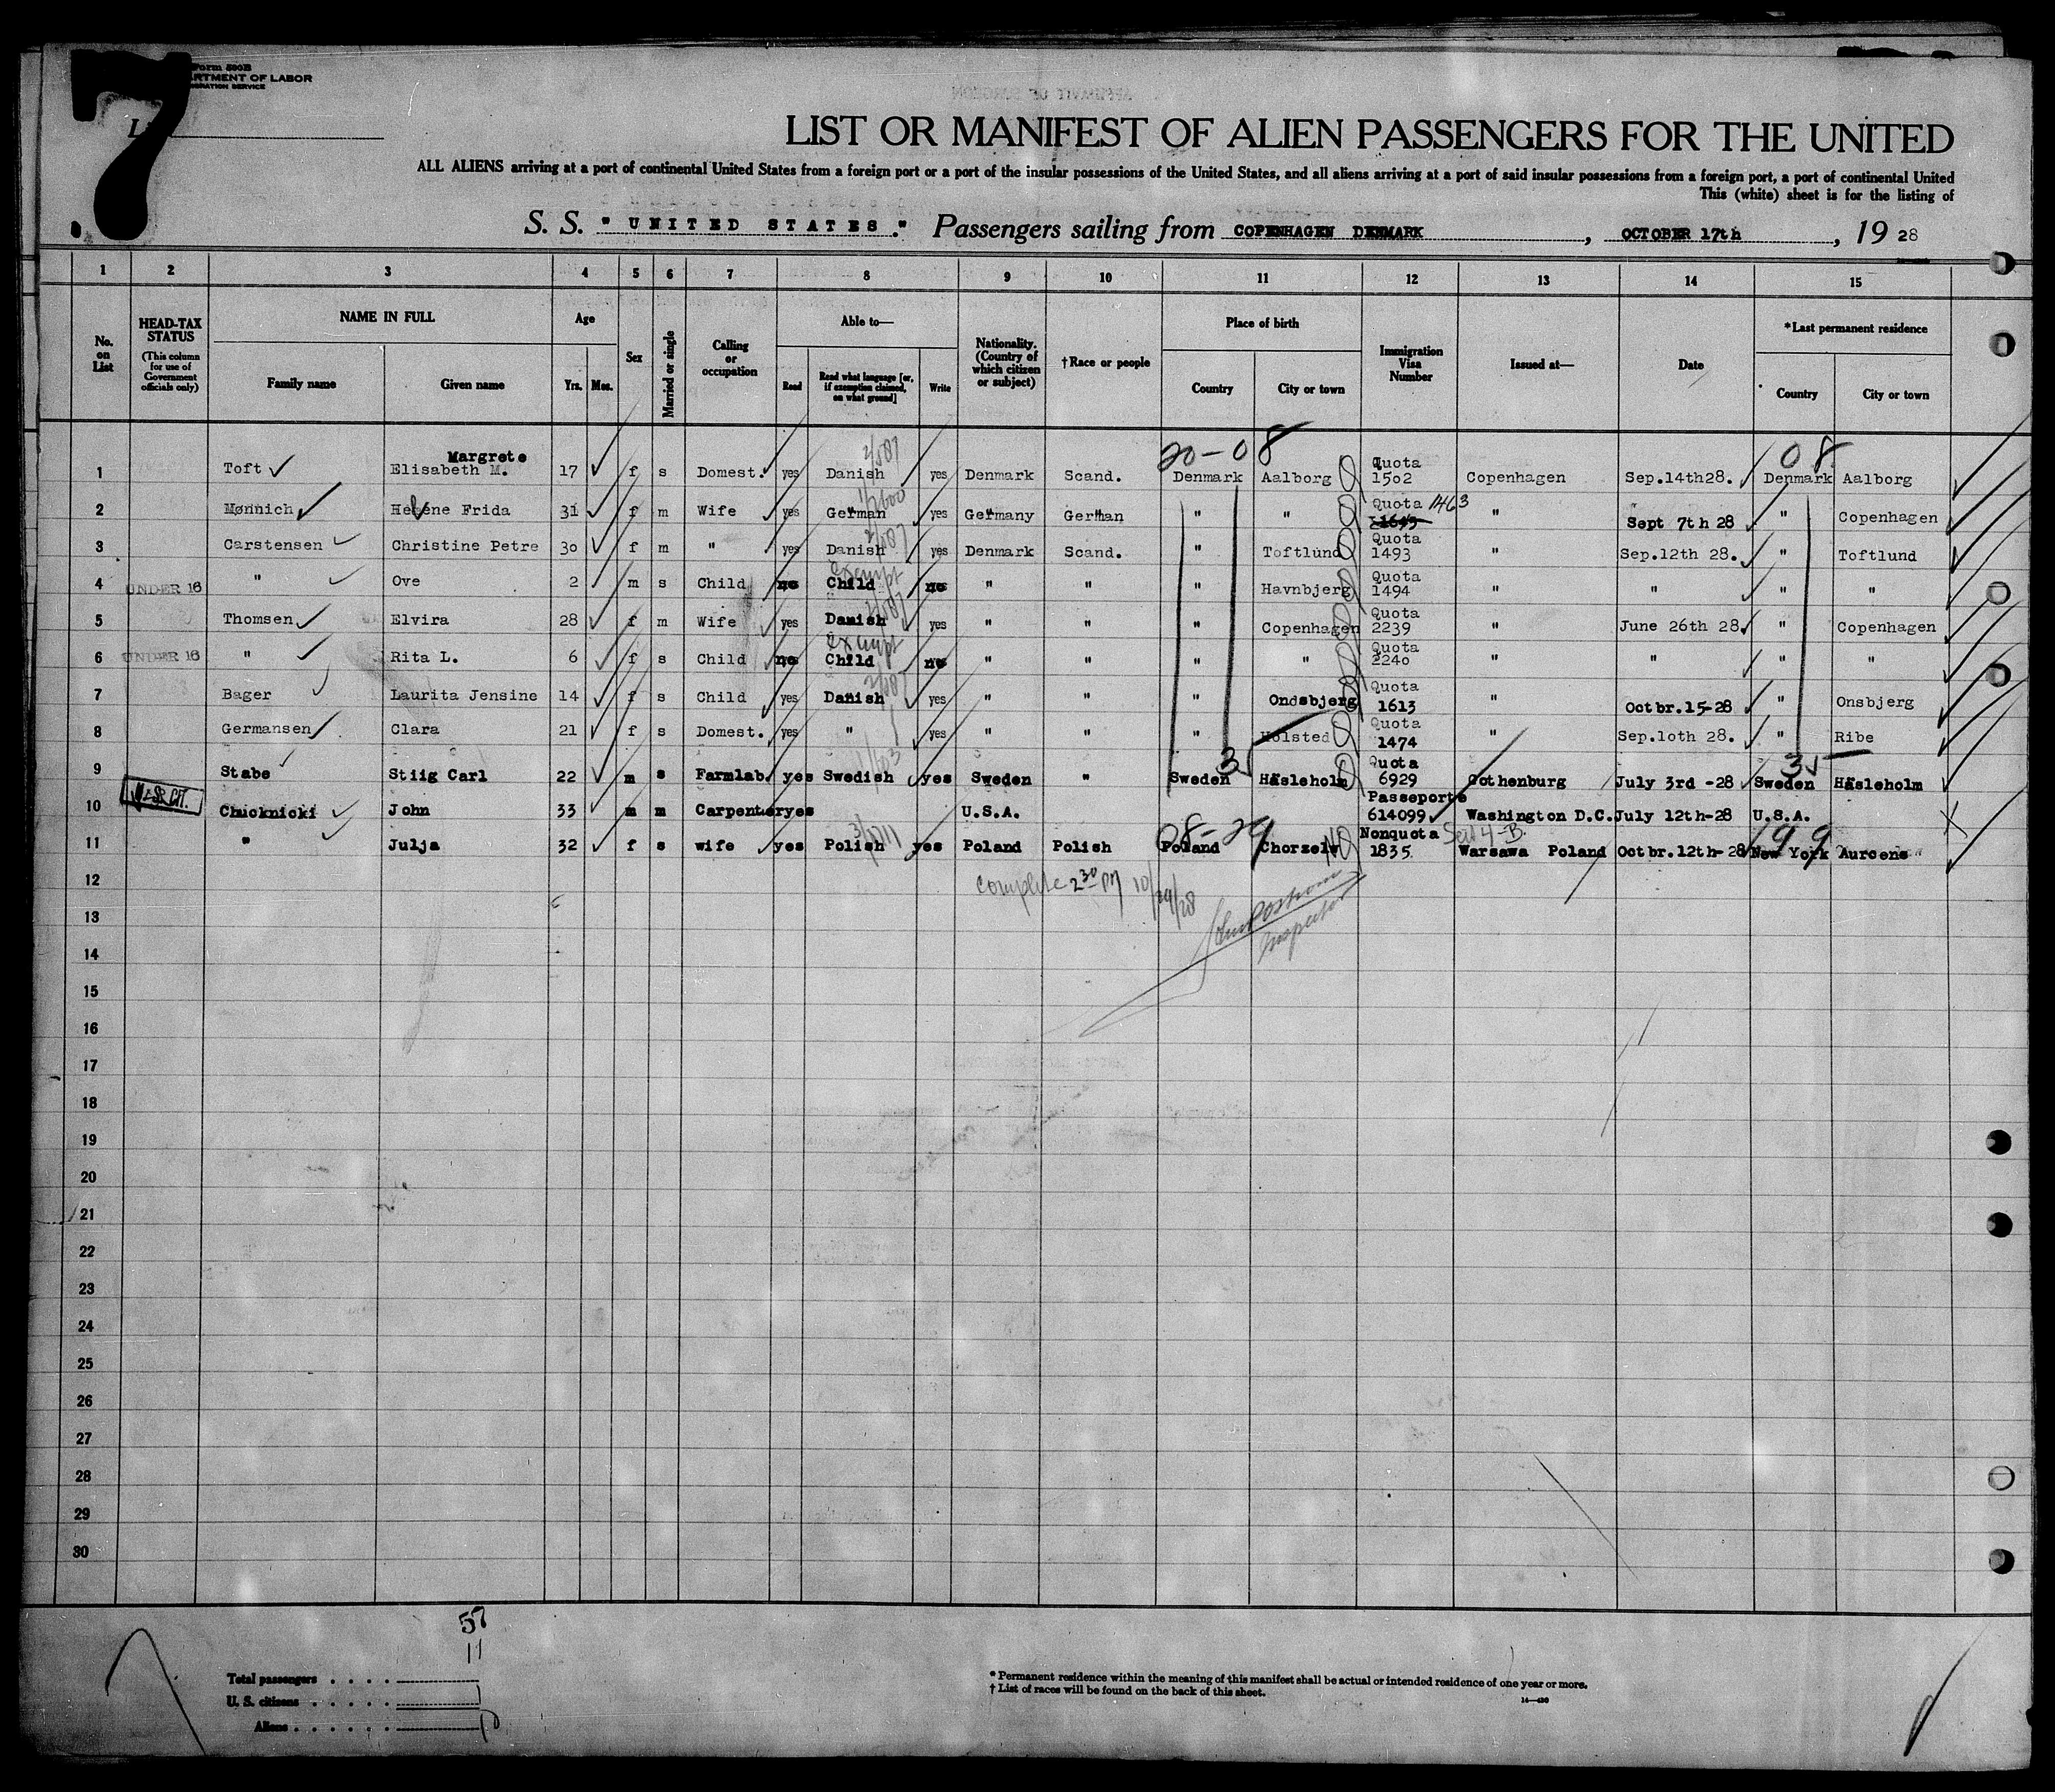 7
Form 500B
DEPARTMENT OF LABOR
IMMIGRATION SERVICE
LIST OR MANIFEST OF ALIEN PASSENGERS FOR THE UNITED
ALL ALIENS arriving at a port of continental United States from a foreign port or a port of the insular possessions of the United States, and all aliens arriving at a port of said insular possessions from a foreign port, a port of continental United
This (white) sheet is for the listing of
S. S. "UNITED STATES." Passengers sailing from COPENHAGEN DENMARK, OCTOBER 17th, 19 28
1 2 3 4 5 6 7 8 9 10 11 12 13 14 15
No. on List
HEAD-TAX STATUS (This column for use of Government officials only)
NAME IN FULL
Family name Given name
Age
Yrs. Mos.
Sex
Married or single
Calling or occupation
Able to—
Read Read what language [or, if exemption claimed, on what ground] Write
Nationality. (Country of which citizen or subject)
†Race or people
Place of birth
Country City or town
Immigration Visa Number
Issued at—
Date
*Last permanent residence
Country City or town
20-08 08
Margrete
1 Toft Elisabeth M. 17 f s Domest. yes Danish yes Denmark Scand. Denmark Aalborg Quota 1502 Copenhagen Sep.14th28. Denmark Aalborg
2 Mønnich Heléne Frida 31 f m Wife yes German yes Germany German " " Quota 1463 " Sept 7th 28 " Copenhagen
3 Carstensen Christine Petre 30 f m " yes Danish yes Denmark Scand. " Toftlund Quota 1493 " Sep.12th 28. " Toftlund
exempt
4 UNDER 16 " Ove 2 m s Child no Child no " " " Havnbjerg Quota 1494 " " " "
5 Thomsen Elvira 28 f m Wife yes Danish yes " " " Copenhagen Quota 2239 " June 26th 28. " Copenhagen
exempt
6 UNDER 16 " Rita L. 6 f s Child no Child no " " " " Quota 2240 " " " "
7 Bager Laurita Jensine 14 f s Child yes Danish yes " " " Ondsbjerg Quota 1613 " Octbr.15-28 " Onsbjerg
8 Germansen Clara 21 f s Domest. yes " yes " " " Holsted Quota 1474 " Sep.10th 28. " Ribe
35 35
9 Stabe Stiig Carl 22 m s Farmlab. yes Swedish yes Sweden " Sweden Häsleholm Quota 6929 Gothenburg July 3rd -28 Sweden Häsleholm
10 U.S. CIT. Chucknicki John 33 m m Carpenter yes U.S.A. Passeporte 614099 Washington D.C. July 12th-28 U.S.A.
08-29 99
11 " Julja 32 f s wife yes Polish yes Poland Polish Poland Chorzele Nonquota 1835 Warsawa Poland Octbr.12th-28 New York Aurcens
12 Complete 2 30 PM 10/29/28
Inspector
13
14
15
16
17
18
19
20
21
22
23
24
25
26
27
28
29
30
57
Total passengers . . . . 11
U. S. citizens . . . . . 1
Aliens . . . . . . 10
* Permanent residence within the meaning of this manifest shall be actual or intended residence of one year or more.
† List of races will be found on the back of this sheet.
14—430